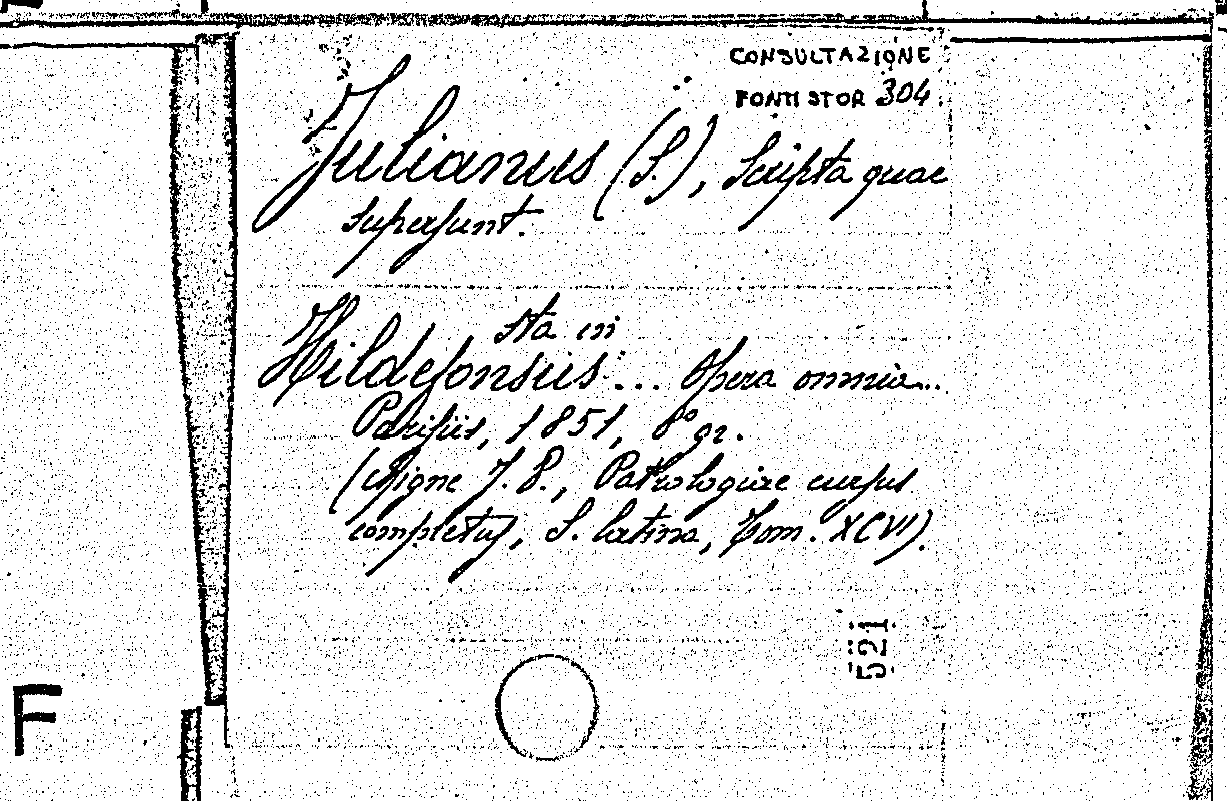 CONSULTAZIONE
FONTI STOR 304.
Julianus (S.), Scripta quae
supersunt.
sta in
Hildefonsus... Opera omnia...
Parisiis, 1851, 8° gr.
(Migne J. P., Patrologiae cursus
completus, S. latina, tom. XCVI).
521
F